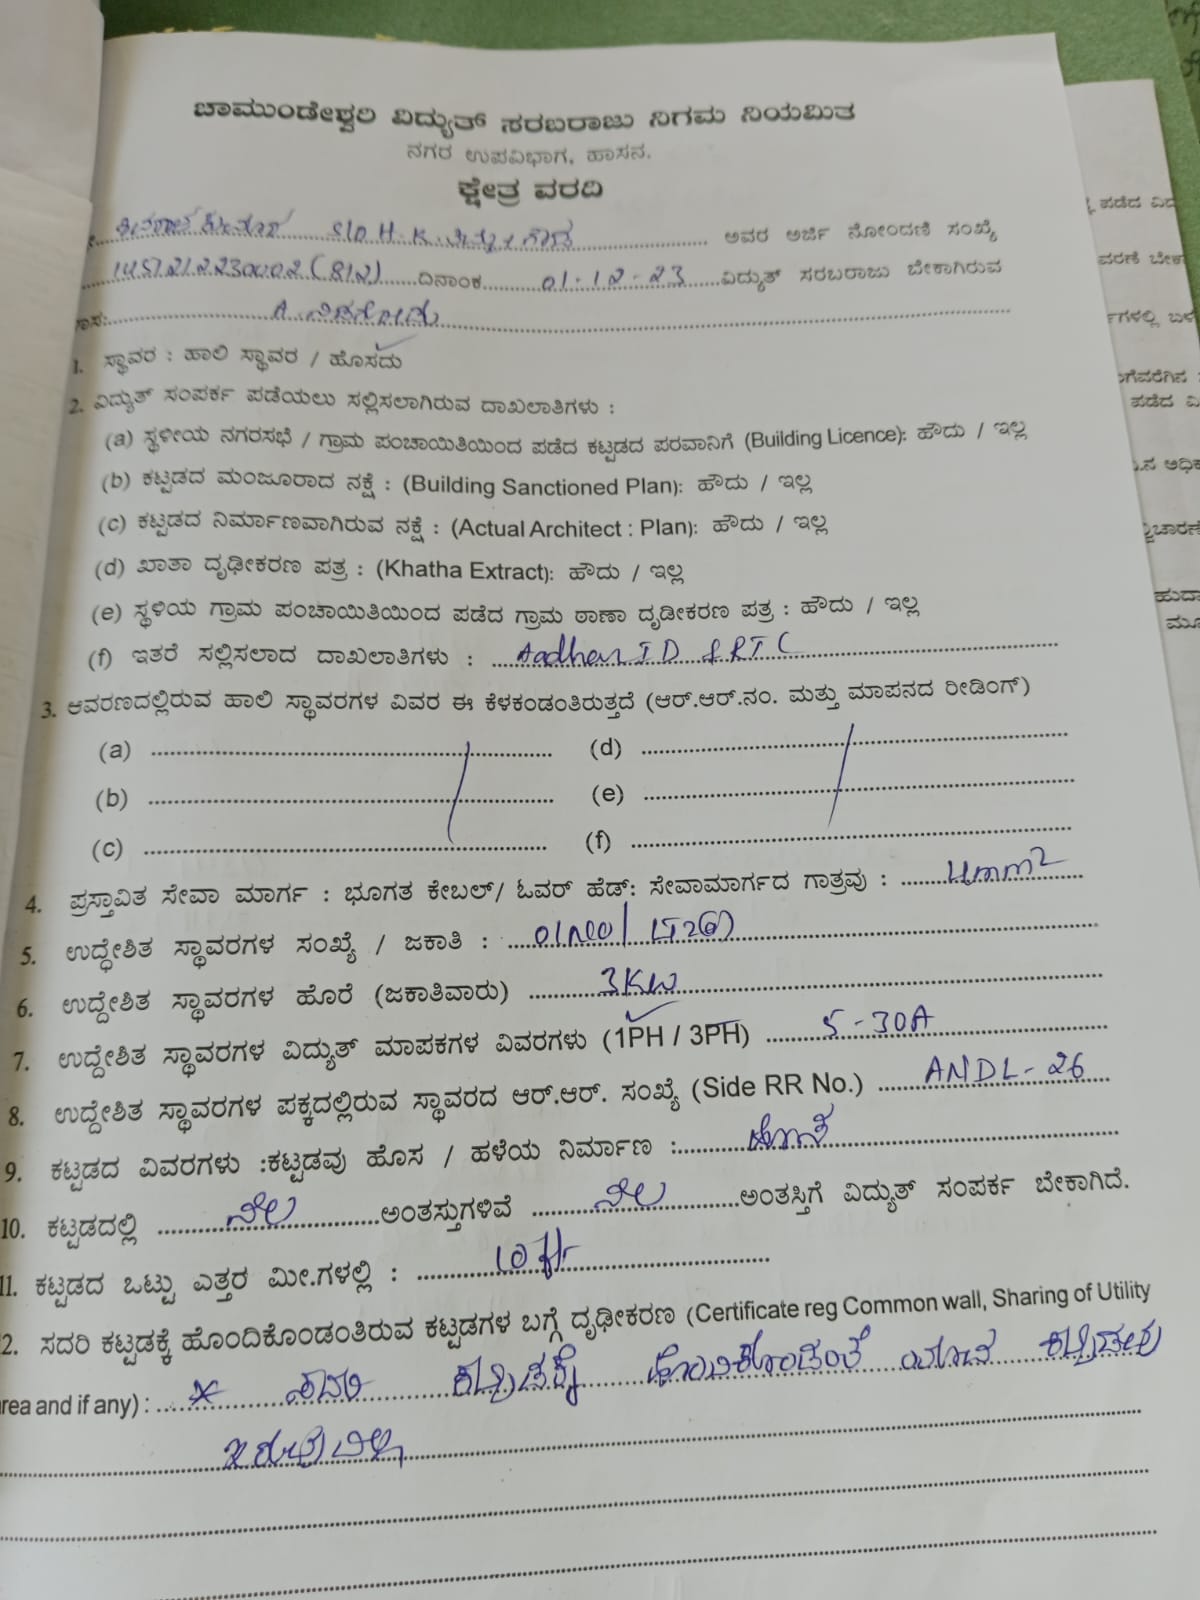 ಚಾಮುಂಡೇಶ್ವರಿ ವಿದ್ಯುತ್ ಸರಬರಾಜು ನಿಗಮ ನಿಯಮಿತ
ನಗರ ಉಪವಿಭಾಗ, ಹಾಸನ.
ಕ್ಷೇತ್ರ ವರದಿ
S/o H.K. ಅವರ ಅರ್ಜಿ ನೋಂದಣಿ ಸಂಖ್ಯೆ
(812) ದಿನಾಂಕ 01-12-23 ವಿದ್ಯುತ್ ಸರಬರಾಜು ಬೇಕಾಗಿರುವ
1. ಸ್ಥಾವರ : ಹಾಲಿ ಸ್ಥಾವರ / ಹೊಸದು
2. ವಿದ್ಯುತ್ ಸಂಪರ್ಕ ಪಡೆಯಲು ಸಲ್ಲಿಸಲಾಗಿರುವ ದಾಖಲಾತಿಗಳು :
(a) ಸ್ಥಳೀಯ ನಗರಸಭೆ / ಗ್ರಾಮ ಪಂಚಾಯಿತಿಯಿಂದ ಪಡೆದ ಕಟ್ಟಡದ ಪರವಾನಿಗೆ (Building Licence): ಹೌದು / ಇಲ್ಲ
(b) ಕಟ್ಟಡದ ಮಂಜೂರಾದ ನಕ್ಷೆ : (Building Sanctioned Plan): ಹೌದು / ಇಲ್ಲ
(c) ಕಟ್ಟಡದ ನಿರ್ಮಾಣವಾಗಿರುವ ನಕ್ಷೆ : (Actual Architect : Plan): ಹೌದು / ಇಲ್ಲ
(d) ಖಾತಾ ದೃಢೀಕರಣ ಪತ್ರ : (Khatha Extract): ಹೌದು / ಇಲ್ಲ
(e) ಸ್ಥಳಿಯ ಗ್ರಾಮ ಪಂಚಾಯಿತಿಯಿಂದ ಪಡೆದ ಗ್ರಾಮ ಠಾಣಾ ದೃಡೀಕರಣ ಪತ್ರ : ಹೌದು / ಇಲ್ಲ
(f) ಇತರೆ ಸಲ್ಲಿಸಲಾದ ದಾಖಲಾತಿಗಳು : Aadhar ID & RTC
3. ಆವರಣದಲ್ಲಿರುವ ಹಾಲಿ ಸ್ಥಾವರಗಳ ವಿವರ ಈ ಕೆಳಕಂಡಂತಿರುತ್ತದೆ (ಆರ್.ಆರ್.ನಂ. ಮತ್ತು ಮಾಪನದ ರೀಡಿಂಗ್)
(a) (d)
(b) (e)
(c) (f)
4. ಪ್ರಸ್ತಾವಿತ ಸೇವಾ ಮಾರ್ಗ : ಭೂಗತ ಕೇಬಲ್/ ಓವರ್ ಹೆಡ್: ಸೇವಾಮಾರ್ಗದ ಗಾತ್ರವು : 4mm2
5. ಉದ್ಧೇಶಿತ ಸ್ಥಾವರಗಳ ಸಂಖ್ಯೆ / ಜಕಾತಿ :
6. ಉದ್ದೇಶಿತ ಸ್ಥಾವರಗಳ ಹೊರೆ (ಜಕಾತಿವಾರು) 3KW
7. ಉದ್ದೇಶಿತ ಸ್ಥಾವರಗಳ ವಿದ್ಯುತ್ ಮಾಪಕಗಳ ವಿವರಗಳು (1PH / 3PH) 5-30A
8. ಉದ್ದೇಶಿತ ಸ್ಥಾವರಗಳ ಪಕ್ಕದಲ್ಲಿರುವ ಸ್ಥಾವರದ ಆರ್.ಆರ್. ಸಂಖ್ಯೆ (Side RR No.) ANDL-26
9. ಕಟ್ಟಡದ ವಿವರಗಳು :ಕಟ್ಟಡವು ಹೊಸ / ಹಳೆಯ ನಿರ್ಮಾಣ : ಹೊಸ
10. ಕಟ್ಟಡದಲ್ಲಿ ನೆಲ ಅಂತಸ್ತುಗಳಿವೆ ನೆಲ ಅಂತಸ್ತಿಗೆ ವಿದ್ಯುತ್ ಸಂಪರ್ಕ ಬೇಕಾಗಿದೆ.
11. ಕಟ್ಟಡದ ಒಟ್ಟು ಎತ್ತರ ಮೀ.ಗಳಲ್ಲಿ : 10 ft
2. ಸದರಿ ಕಟ್ಟಡಕ್ಕೆ ಹೊಂದಿಕೊಂಡಂತಿರುವ ಕಟ್ಟಡಗಳ ಬಗ್ಗೆ ದೃಢೀಕರಣ (Certificate reg Common wall, Sharing of Utility
rea and if any) : * ಸದರಿ ಕಟ್ಟಡಕ್ಕೆ ಹೊಂದಿಕೊಂಡಂತೆ ಯಾವ ಕಟ್ಟಡವು
ಇರುವುದಿಲ್ಲ